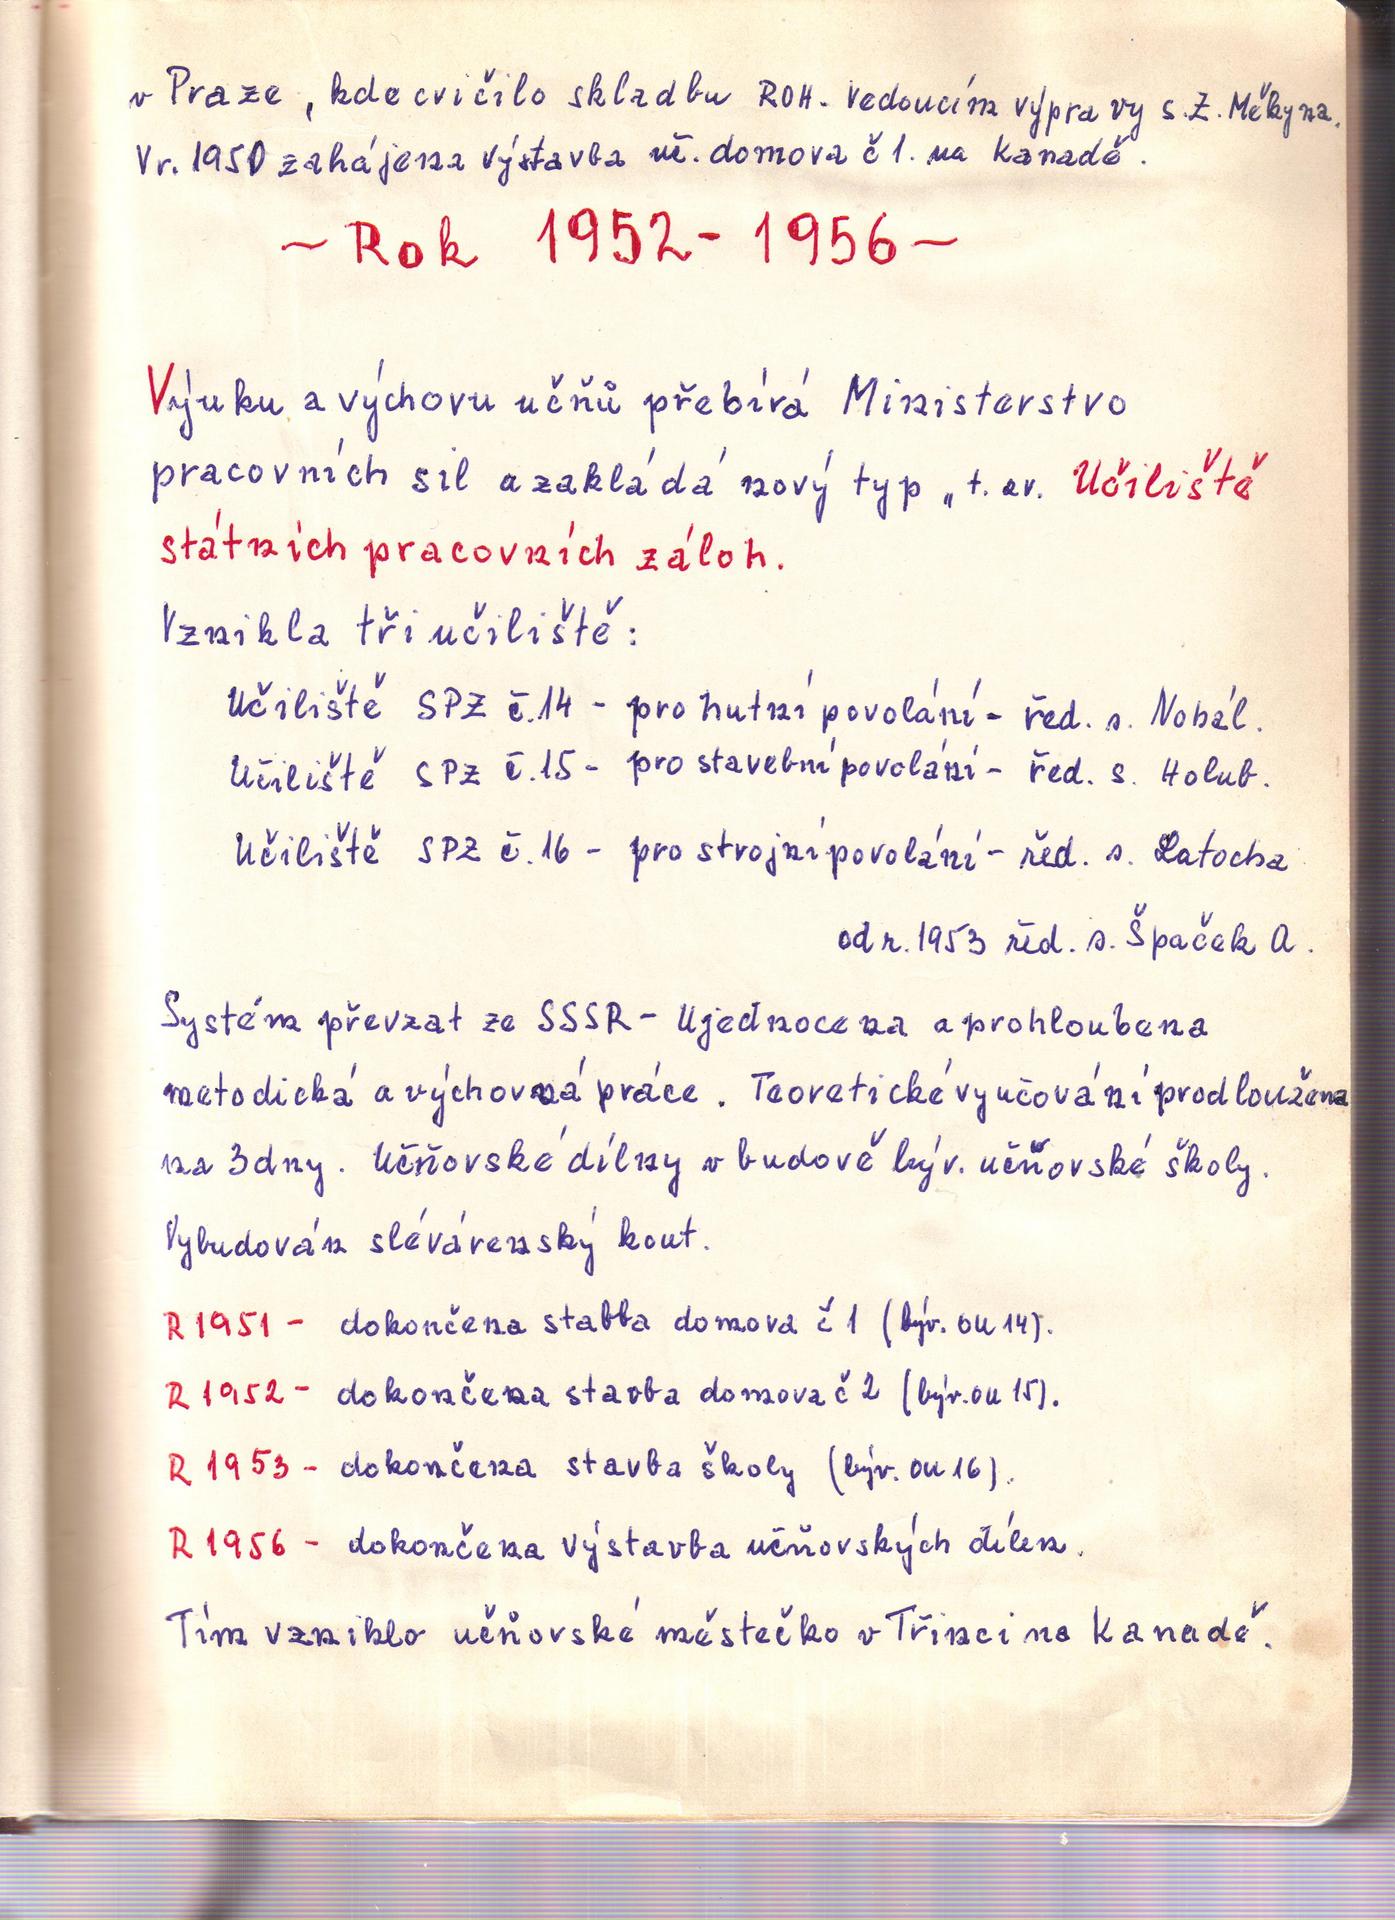 v Praze, kde cvičilo skladbu ROH. Vedoucím výpravy s. Z. Měkyna.
V r. 1950 zahájena výstavba uč. domova č 1. na Kanadě.
~ Rok 1952 - 1956 ~
Výuku a výchovu učňů přebírá Ministerstvo
pracovních sil a zakládá nový typ „t. zv. Učiliště
státních pracovních záloh.
Vznikla tři učiliště:
Učiliště SPZ č. 14 - pro hutní povolání - řed. s. Nohál.
Učiliště SPZ č. 15 - pro stavební povolání - řed. s. Holub.
Učiliště SPZ č. 16 - pro strojní povolání - řed. s. Latocha
od r. 1953 řed. s. Špaček A.
Systém převzat ze SSSR - Ujednocena a prohloubena
metodická a výchovná práce. Teoretické vyučování prodloužena
na 3 dny. Učňovské dílny v budově býv. učňovské školy.
Vybudován slévárenský kout.
R 1951 - dokončena stabba domova č 1 (býv. OU 14).
R 1952 - dokončena stavba domova č 2 (býv. ou 15).
R 1953 - dokončena stavba školy (býv. OU 16).
R 1956 - dokončena výstavba učňovských dílen.
Tím vzniklo učňovské městečko v Třinci na Kanadě.